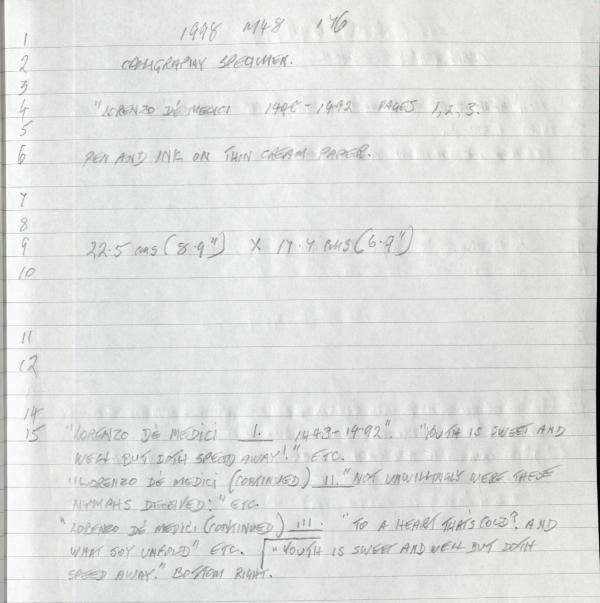 1998 M48 176
1
2 CALLIGRAPHY SPECIMEN.
3
4 "LORENZO DÉ MEDICI 1448-1492 PAGES 1, 2, 3.
5
6 PEN AND INK ON THIN CREAM PAPER.
7
8
9 22.5 cms (8.9") X 17.4 cms (6.9")
10
11
12
14
15 "LORENZO DÉ MEDICI I. 1448-1492". "YOUTH IS SWEET AND
WELL BUT DOTH SPEED AWAY!." ETC.
"LORENZO DÉ MEDICI (CONTINUED) II. "NOT UNWILLINGLY WERE THESE
NYMPHS DECEIVED:" ETC.
"LORENZO DÉ MEDICI (CONTINUED) III. "TO A HEART THAT'S COLD? AND
WHAT JOY UNFOLD" ETC. "YOUTH IS SWEET AND WELL BUT DOTH
SPEED AWAY." BOTTOM RIGHT.